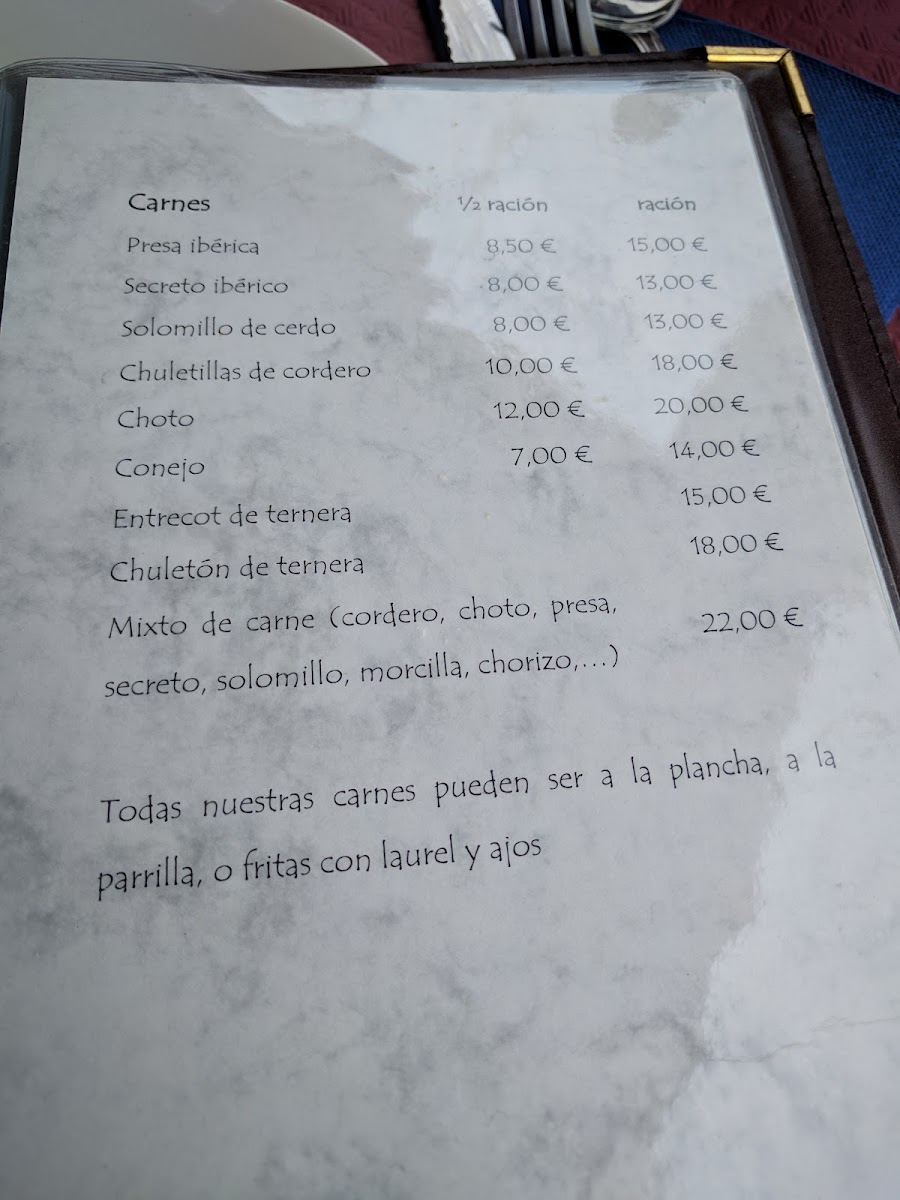 Carnes ½ ración ración
Presa ibérica 8,50 € 15,00 €
Secreto ibérico 8,00 € 13,00 €
Solomillo de cerdo 8,00 € 13,00 €
Chuletillas de cordero 10,00 € 18,00 €
Choto 12,00 € 20,00 €
Conejo 7,00 € 14,00 €
Entrecot de ternera 15,00 €
Chuletón de ternera 18,00 €
Mixto de carne (cordero, choto, presa, 22,00 €
secreto, solomillo, morcilla, chorizo,...)
Todas nuestras carnes pueden ser a la plancha, a la
parrilla, o fritas con laurel y ajos